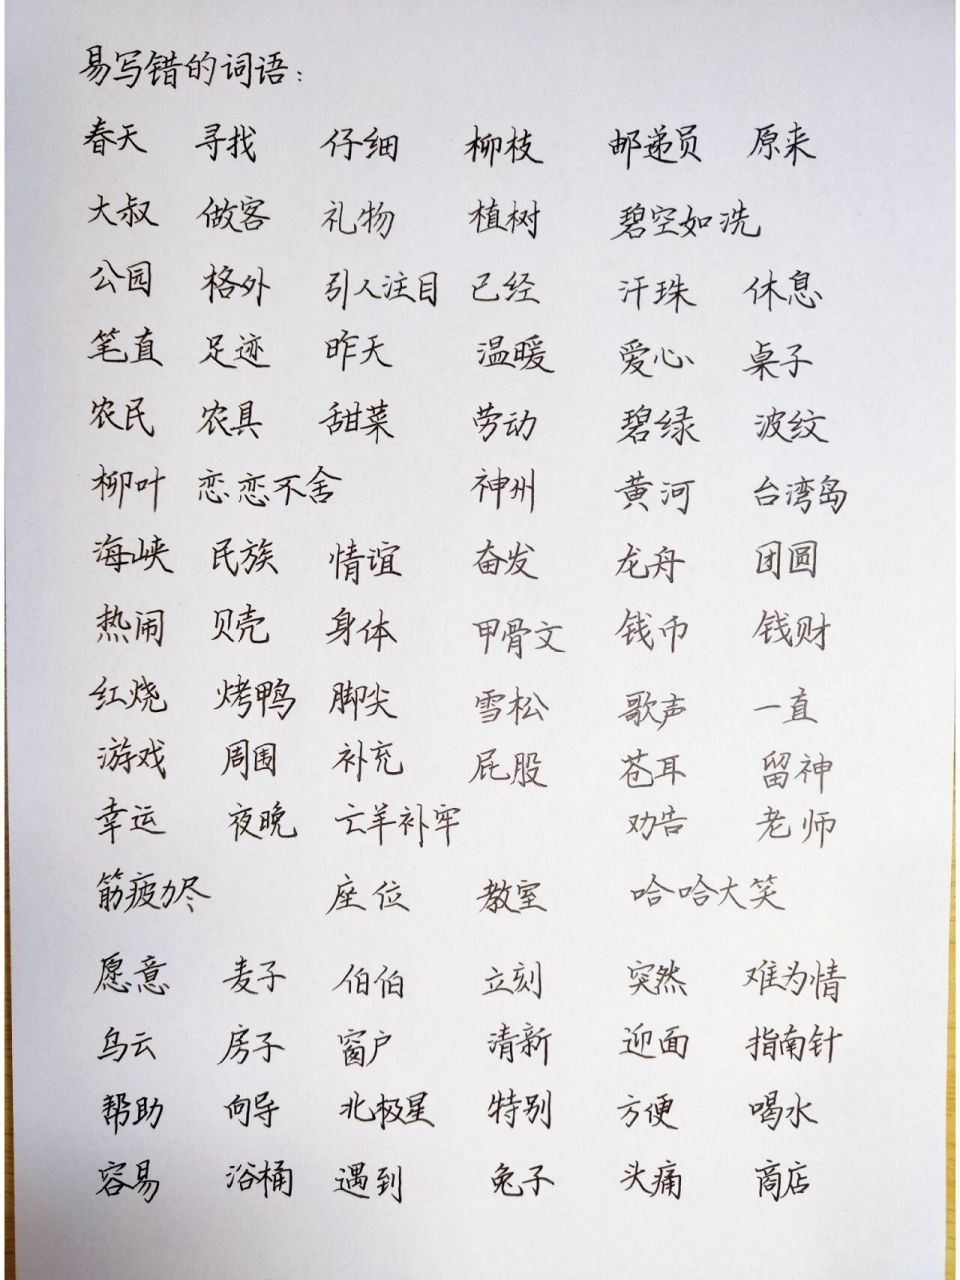 易写错的词语：
春天 寻找 仔细 柳枝 邮递员 原来
大叔 做客 礼物 植树 碧空如洗
公园 格外 引人注目 已经 汗珠 休息
笔直 足迹 昨天 温暖 爱心 桌子
农民 农具 甜菜 劳动 碧绿 波纹
柳叶 恋恋不舍 神州 黄河 台湾岛
海峡 民族 情谊 奋发 龙舟 团圆
热闹 贝壳 身体 甲骨文 钱币 钱财
红烧 烤鸭 脚尖 雪松 歌声 一直
游戏 周围 补充 屁股 苍耳 留神
幸运 夜晚 亡羊补牢 劝告 老师
筋疲力尽 座位 教室 哈哈大笑
愿意 麦子 伯伯 立刻 突然 难为情
乌云 房子 窗户 清新 迎面 指南针
帮助 向导 北极星 特别 方便 喝水
容易 浴桶 遇到 兔子 头痛 商店